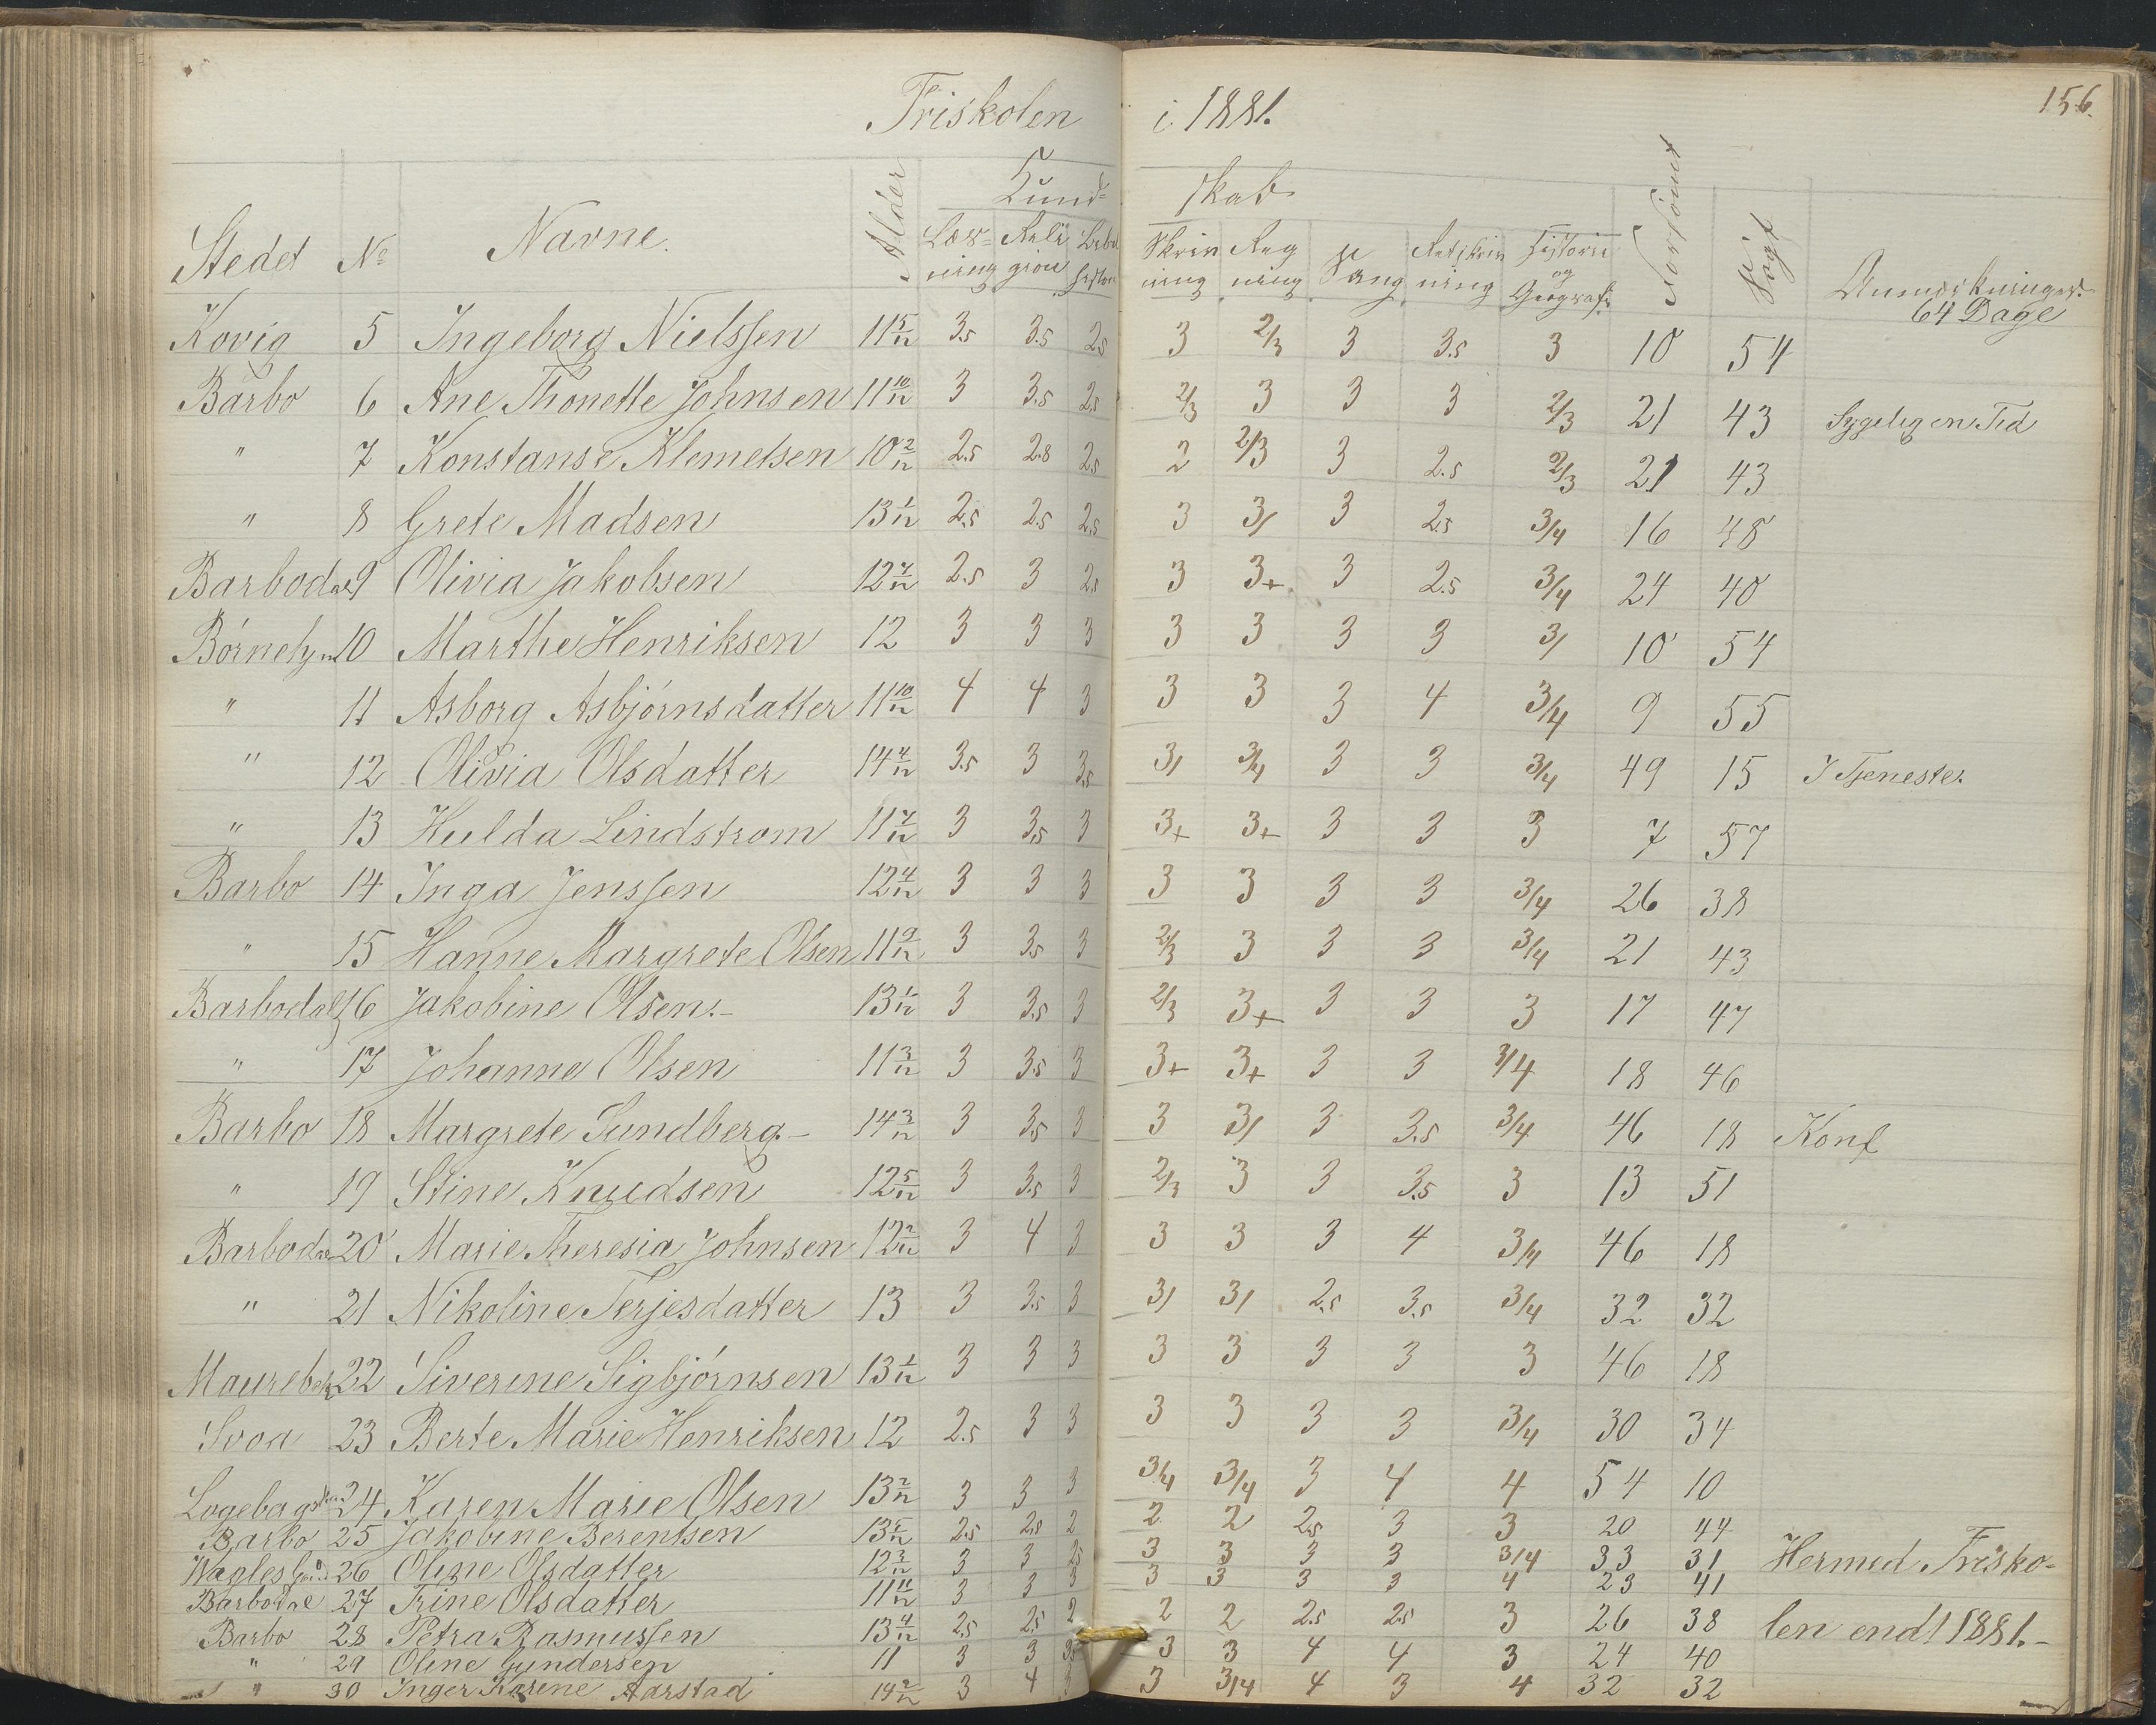 Friskolen i 1881. 156.
Stedet No Navne. Alder Kund= skab Forsömt Sögt Anmerkninger.
Læs=ning Reli gion Bibel histori Skriv ning Reg ning Sang Retskriv ning Historie og Geografi 64 Dage
Kovig 5 Ingeborg Nielssen 11 5/12 3.5 3.5 2.5 3 2/3 3 3.5 3 10 54
Barbo 6 Ane Thonette Johnsen 11 10/12 3 3.5 2.5 2/3 3 3 3 2/3 21 43 Sygelig en Tid
" 7 Konstanse Klemetsen 10 2/12 2.5 2.8 2.5 2 2/3 3 2.5 2/3 21 43
" 8 Grete Madsen 13 1/12 2.5 2.5 2.5 3 3/ 3 2.5 3/4 16 48
Barbodal 9 Olivia Jakobsen 12 7/12 2.5 3 2.5 3 3+ 3 2.5 3/4 24 40
Börnehjm 10 Marthe Henriksen 12 3 3 3 3 3 3 3 3/ 10 54
" 11 Asborg Asbjörnsdatter 11 10/12 4 4 3 3 3 3 4 3/4 9 55
" 12 Olivia Olsdatter 14 4/12 3.5 3 3.5 3/ 3/4 3 3 3/4 49 15 I Tjeneste.
" 13 Hulda Lindstrom 11 7/12 3 3.5 3 3+ 3+ 3 3 3 7 57
Barbo 14 Inga Jenssen 12 4/12 3 3 3 3 3 3 3 3/4 26 38
" 15 Hanne Margrete Olsen 11 9/12 3 3.5 3 2/3 3 3 3 3/4 21 43
Barbodal 16 Jakobine Olsen.- 13 1/12 3 3.5 3 2/3 3+ 3 3 3 17 47
" 17 Johanne Olsen 11 3/12 3 3.5 3 3+ 3+ 3 3 3/4 18 46
Barbo 18 Margrete Sundberg.- 14 3/12 3 3.5 3 3 3/ 3 3.5 3/4 46 18 Konf
" 19 Stine Knudsen 12 5/12 3 3.5 3 2/3 3 3 3.5 3 13 51
Barbodal 20 Marie Theresia Johnsen 12 2/12 3 4 3 3 3 3 4 3/4 46 18
" 21 Nikoline Terjesdatter 13 3 3.5 3 3/ 3/ 2.5 3.5 3/4 32 32
22 Siverine Sigbjörnsen 13 1/12 3 3 3 3 3 3 3 3 46 18
Svoa 23 Berte Marie Henriksen 12 2.5 3 3 3 3 3 3 3/4 30 34
24 Karen Marie Olsen 13 2/12 3 3 3 3/4 3/4 3 4 4 54 10
Barbo 25 Jakobine Berentsen 13 2.5 2.8 2 2 2 2.5 3 3 20 44
26 Oline Olsdatter 12 3/12 3 3 2.5 3 3 3 3 3/4 33 31 Hermed Frisko=
Barbodal 27 Trine Olsdatter 11 11/12 3 3 3 3 3 3 3 4 23 41
Barbo 28 Petra Rasmussen 13 4/12 2.5 2.5 2 2 2 2.5 2.5 3 26 38 len endt 1881.-
" 29 Oline Gundersen 11 3 3 3.5 3 3 4 4 3 24 40
" 30 Inger Karine Aarstad 14 2/12 3 4 3 3 3/4 4 3 4 32 32